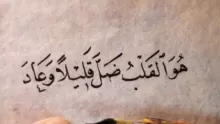 هُوَ ٱلقَلْبُ ضَلَّ قَلِيْلًا وَعَادَ